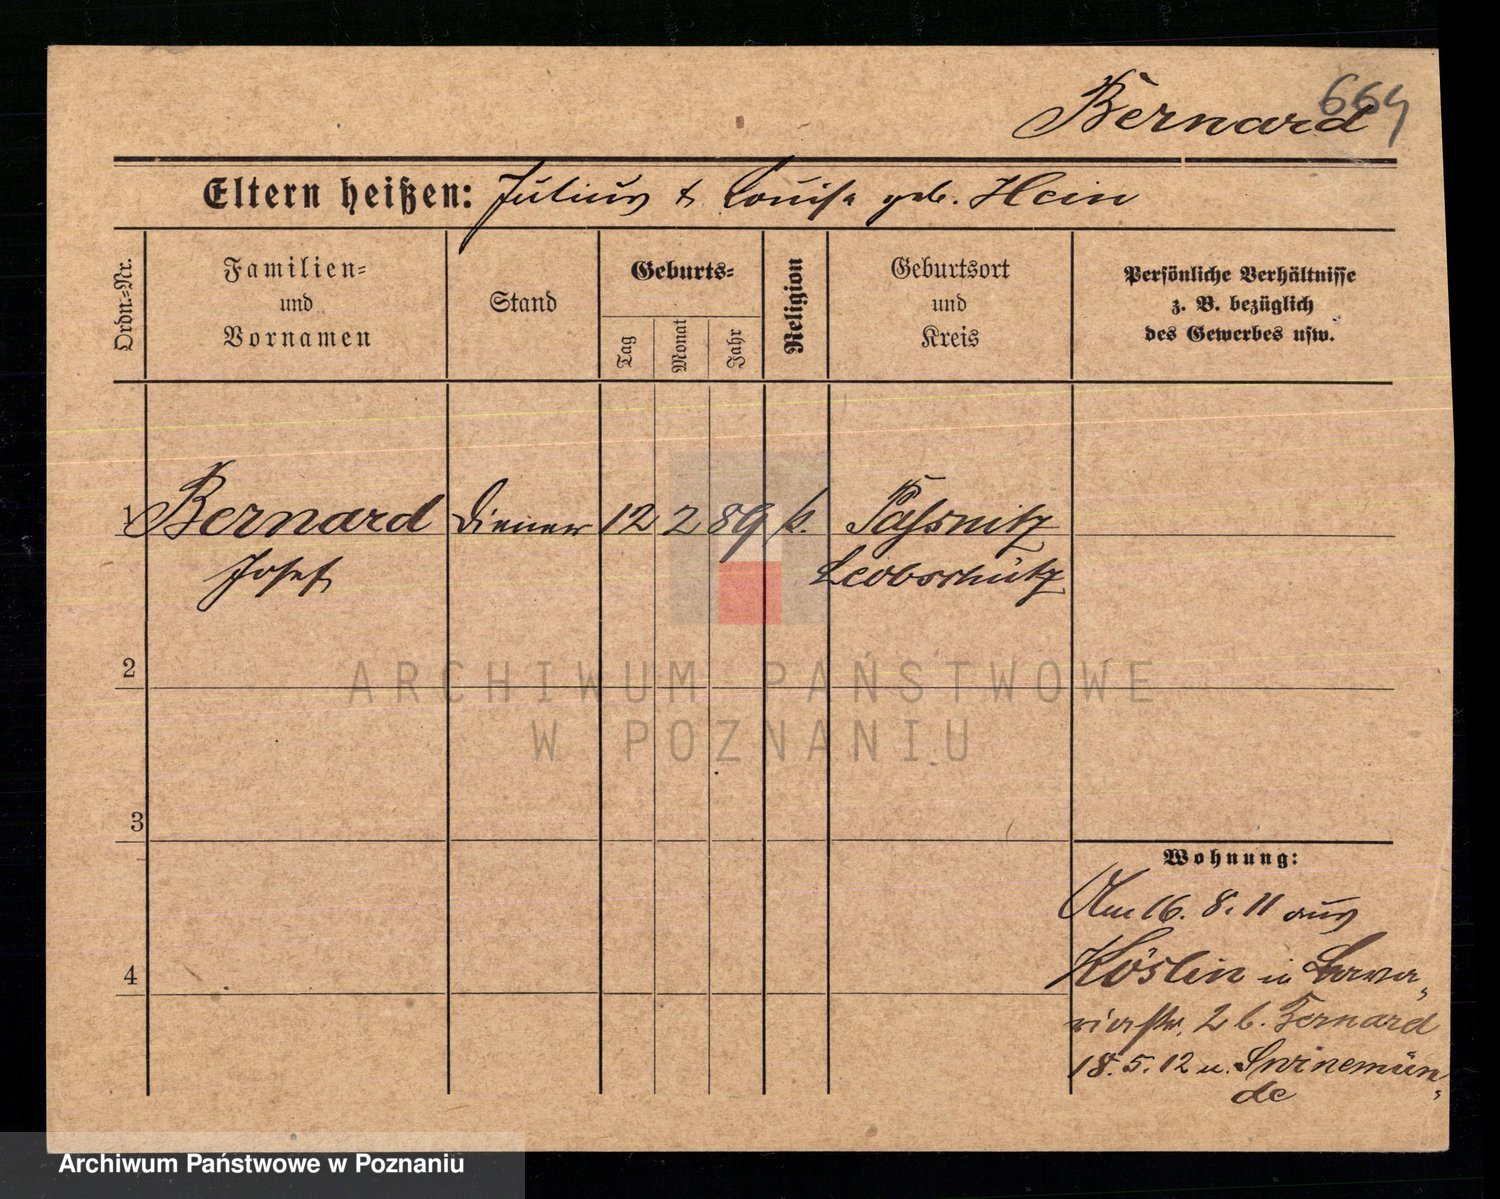 664
Bernard
Eltern heißen: Julius & Louise geb. Hein
Ordn.-Nr.
Familien-
und
Vornamen
Stand
Geburts-
Tag
Monat
Jahr
Religion
Geburtsort
und
Kreis
Persönliche Verhältnisse
z. B. bezüglich
des Gewerbes usw.
1 Bernard Diener 12 2 89 k. Sassnitz
Josef Leobschütz
2
3
4
Wohnung:
Am 16. 8. 11 aus
Köslin in
2 b. Bernard
18. 5. 12 n. Swinemün-
de
ARCHIWUM PAŃSTWOWE
W POZNANIU
Archiwum Państwowe w Poznaniu